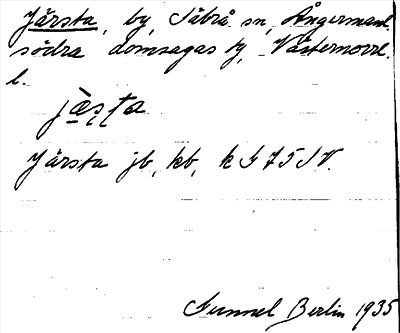 Järsta, by, Säbrå sn, Ångermanl.
södra domsagas tg, Västernorrl.
l.
jæsta
Järsta jb, kb, k G 75 SV.
Gunnel Berlin 1935